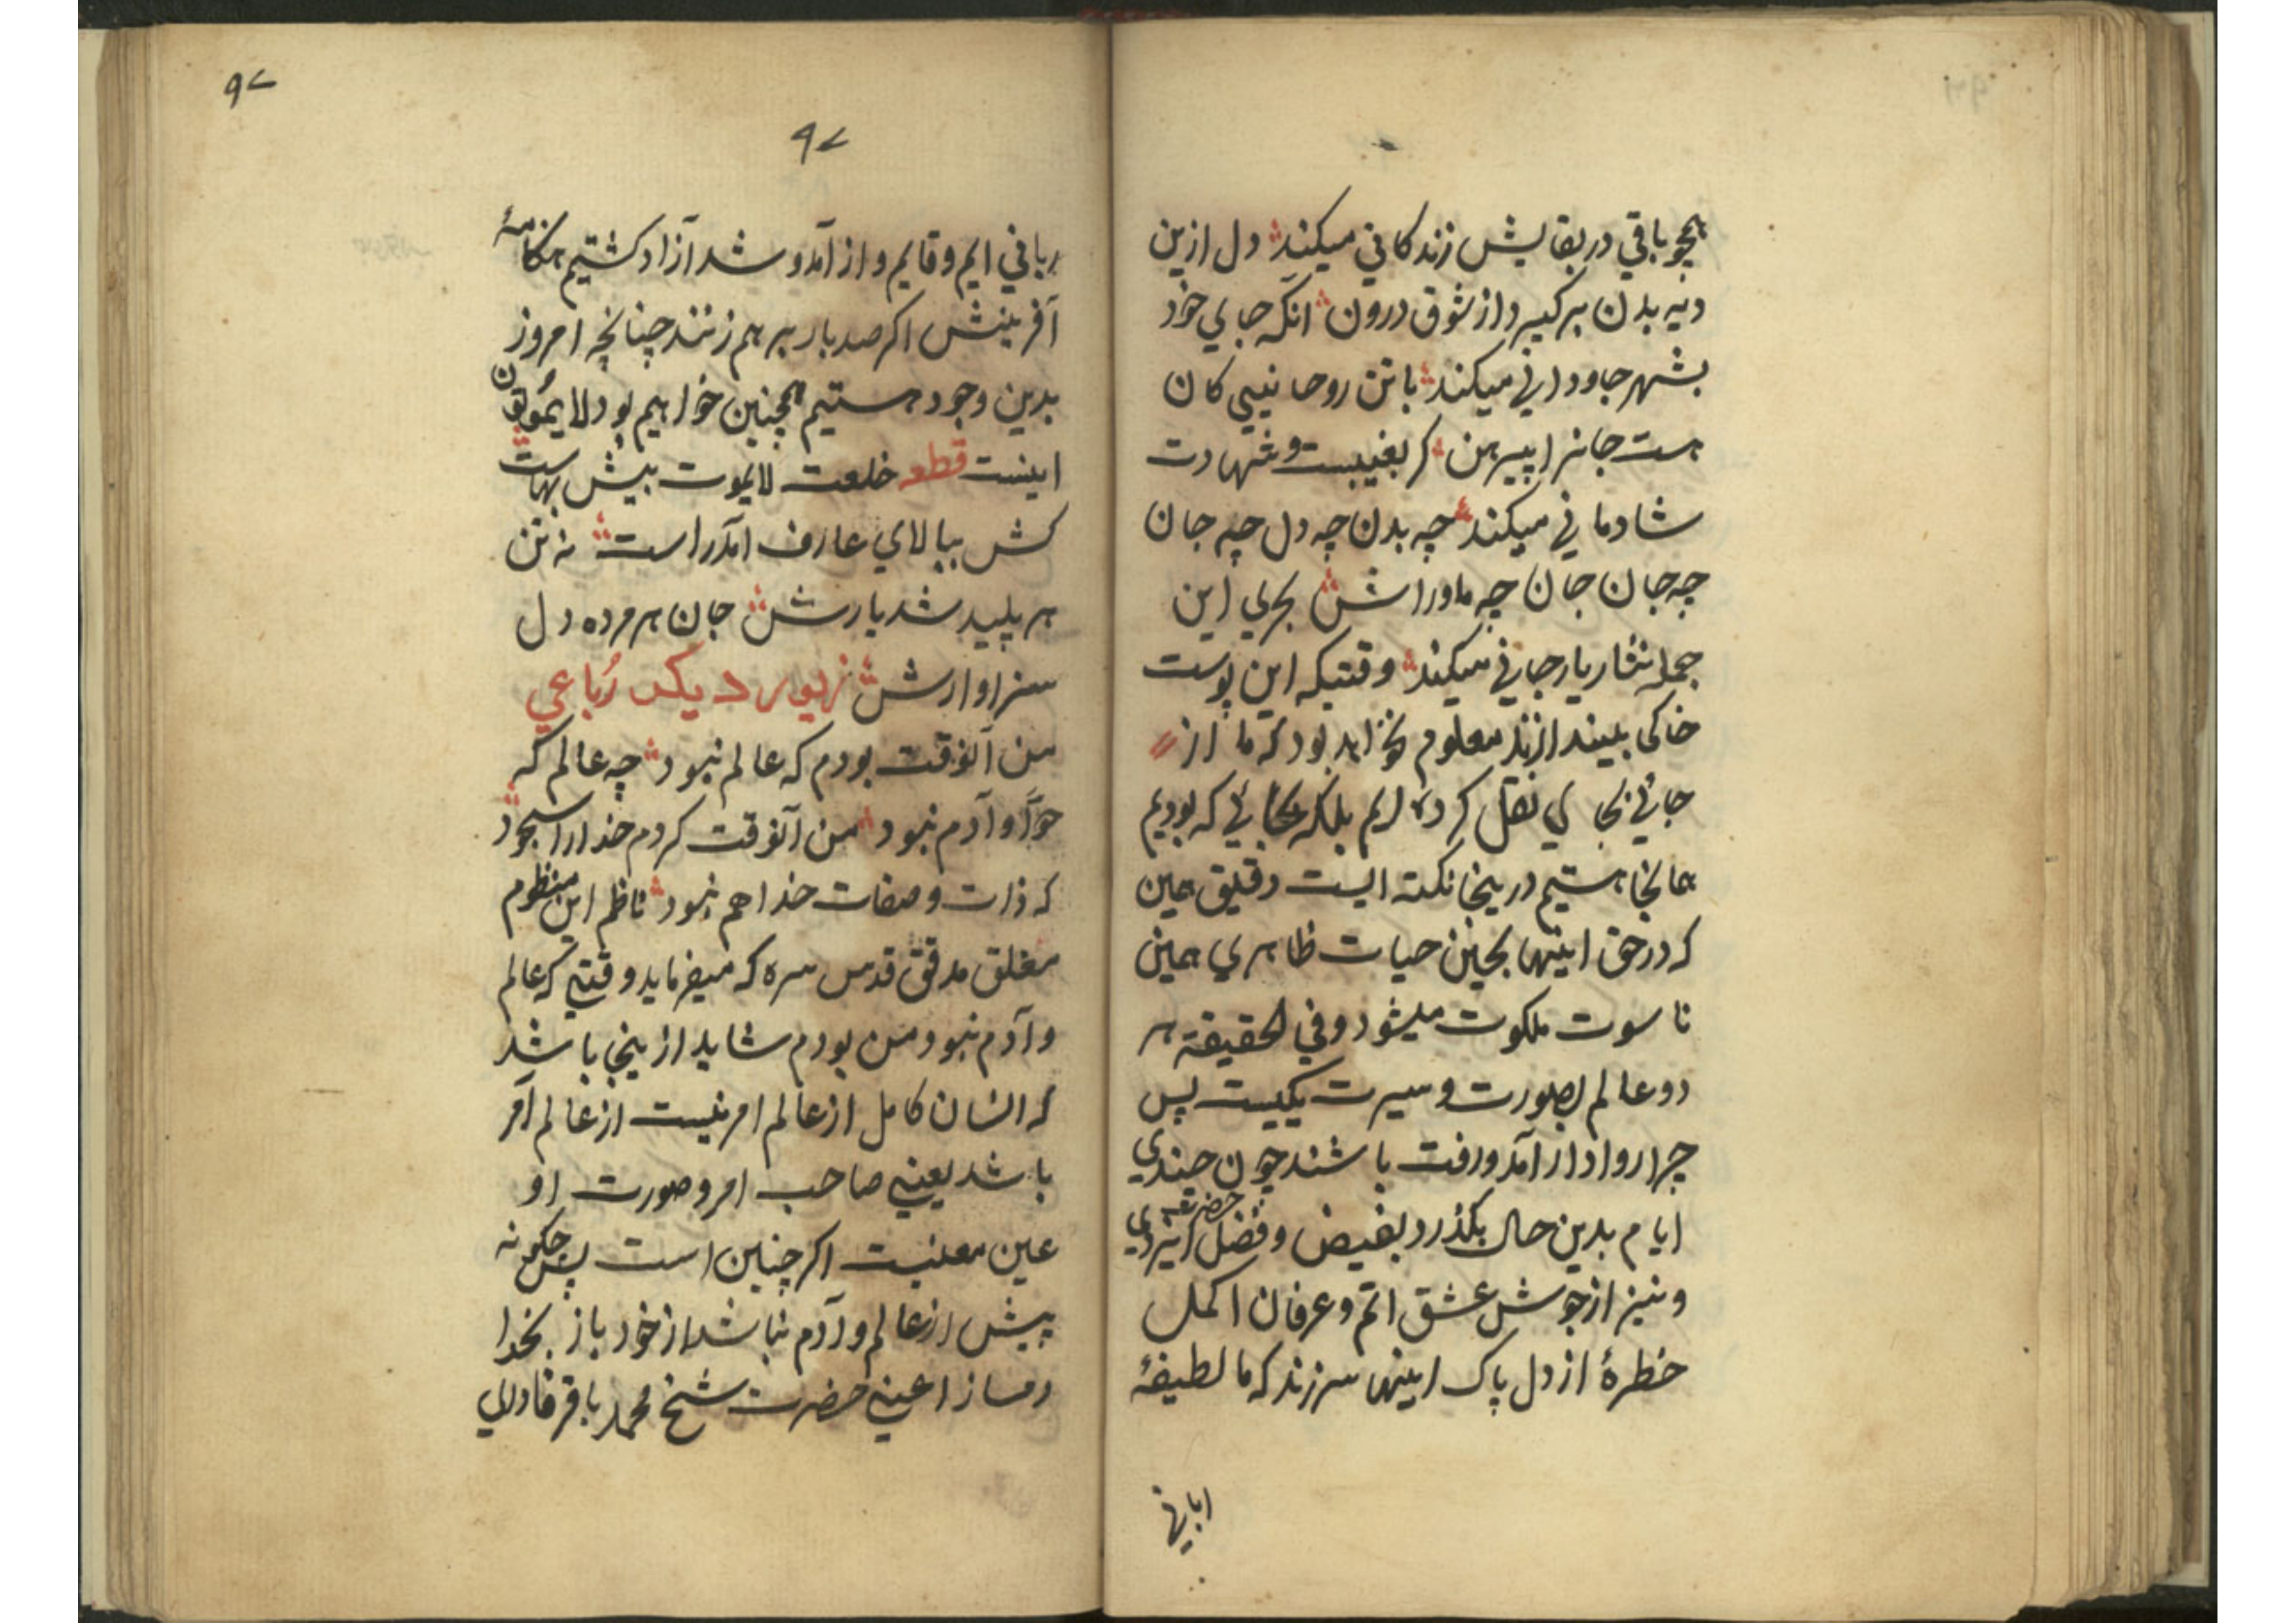 همچو باقي در بقايش زندكاني ميكند دل ازين
ديه بدن بركيرد از شوق درون آنكه جاي خود
بشهر جاوداني ميكند با تن روحانيي كان
هست جانرا پيرهن كر بغيبست و شهادت
شادماني ميكند چه بدن چه دل چه جان
چه جان جان چه ماوراش بحري اين
جمله نثار يار جاني ميكند وقتيكه اين پوست
خاكي بيندازند معلوم نخواهد بود كه ما از
جائي بجاي نقل كرده ايم بلكه بجائي كه بوديم
همانجا هستيم درينجا نكته ايست دقيق همين
كه در حق اينها بحين حيات ظاهري همين
ناسوت ملكوت ميشود و في الحقيقة هر
دو عالم بصورت و سيرت يكيست پس
چرا روادار آمد و رفت باشند چون چندي
ايام بدين حال بكذرد بفيض و فضل حضرت ايزدي
و نيز از جوش عشق اتم و عرفان اكمل
خطرۀ از دل پاك اينها سر زند كه ما لطيفۀ
٩٧
٩٧
رباني ايم و قايم و از آمد و شد آزاد كشتيم هنكامۀ
آفرينش اكر صد بار بر هم زنند چنانچه امروز
بدين وجود هستيم همچنين خواهيم بود لايموتون
اينست قطعه خلعت لايموت بيش بهاست
كش ببالاي عارف آمد راست نه تن
هر پليد شد يارش جان هر مرده دل
سزاوارش زيور ديكر رباعي
من آنوقت بودم كه عالم نبود چه عالم كه
حوّا و آدم نبود من آنوقت كردم خدا را سجود
كه ذات و صفات خدا هم نبود ناظم اين منظوم
مغلق مدقق قدس سره كه ميفرمايد وقتي كه عالم
و آدم نبود من بودم شايد ازينجا باشد
كه انسان كامل از عالم امر نيست از عالم آمر
باشد يعني صاحب امر و صورت او
عين معنيست اكر چنين است پس چكونه
پيش از عالم و آدم نباشد از خود باز بخدا
دمساز اعني حضرت شيخ محمد باقر قادري